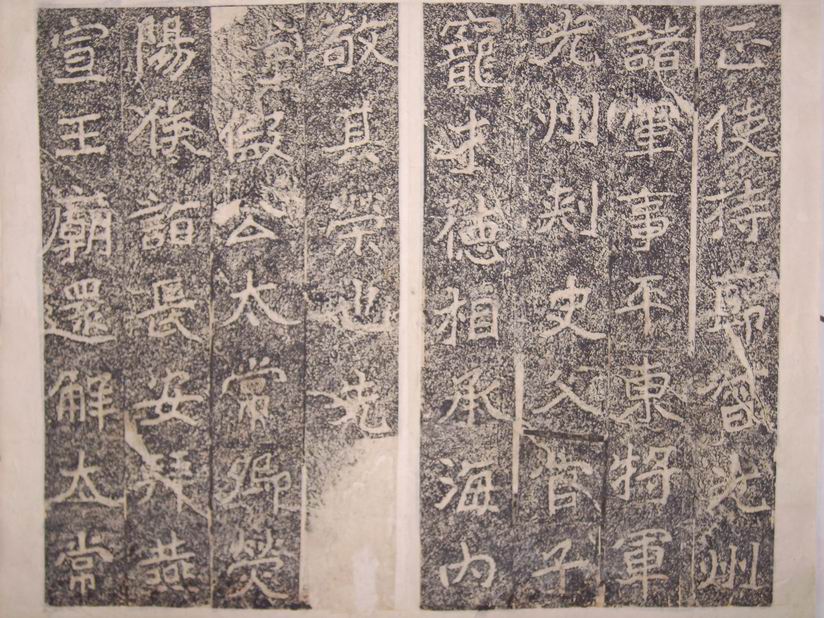 正使持節督光州
諸軍事平東將軍
光州刺史父官子
寵才德相承海内
敬其榮也先
假公太常卿熒
陽侯詣長安拜燕
宣王廟還解太常